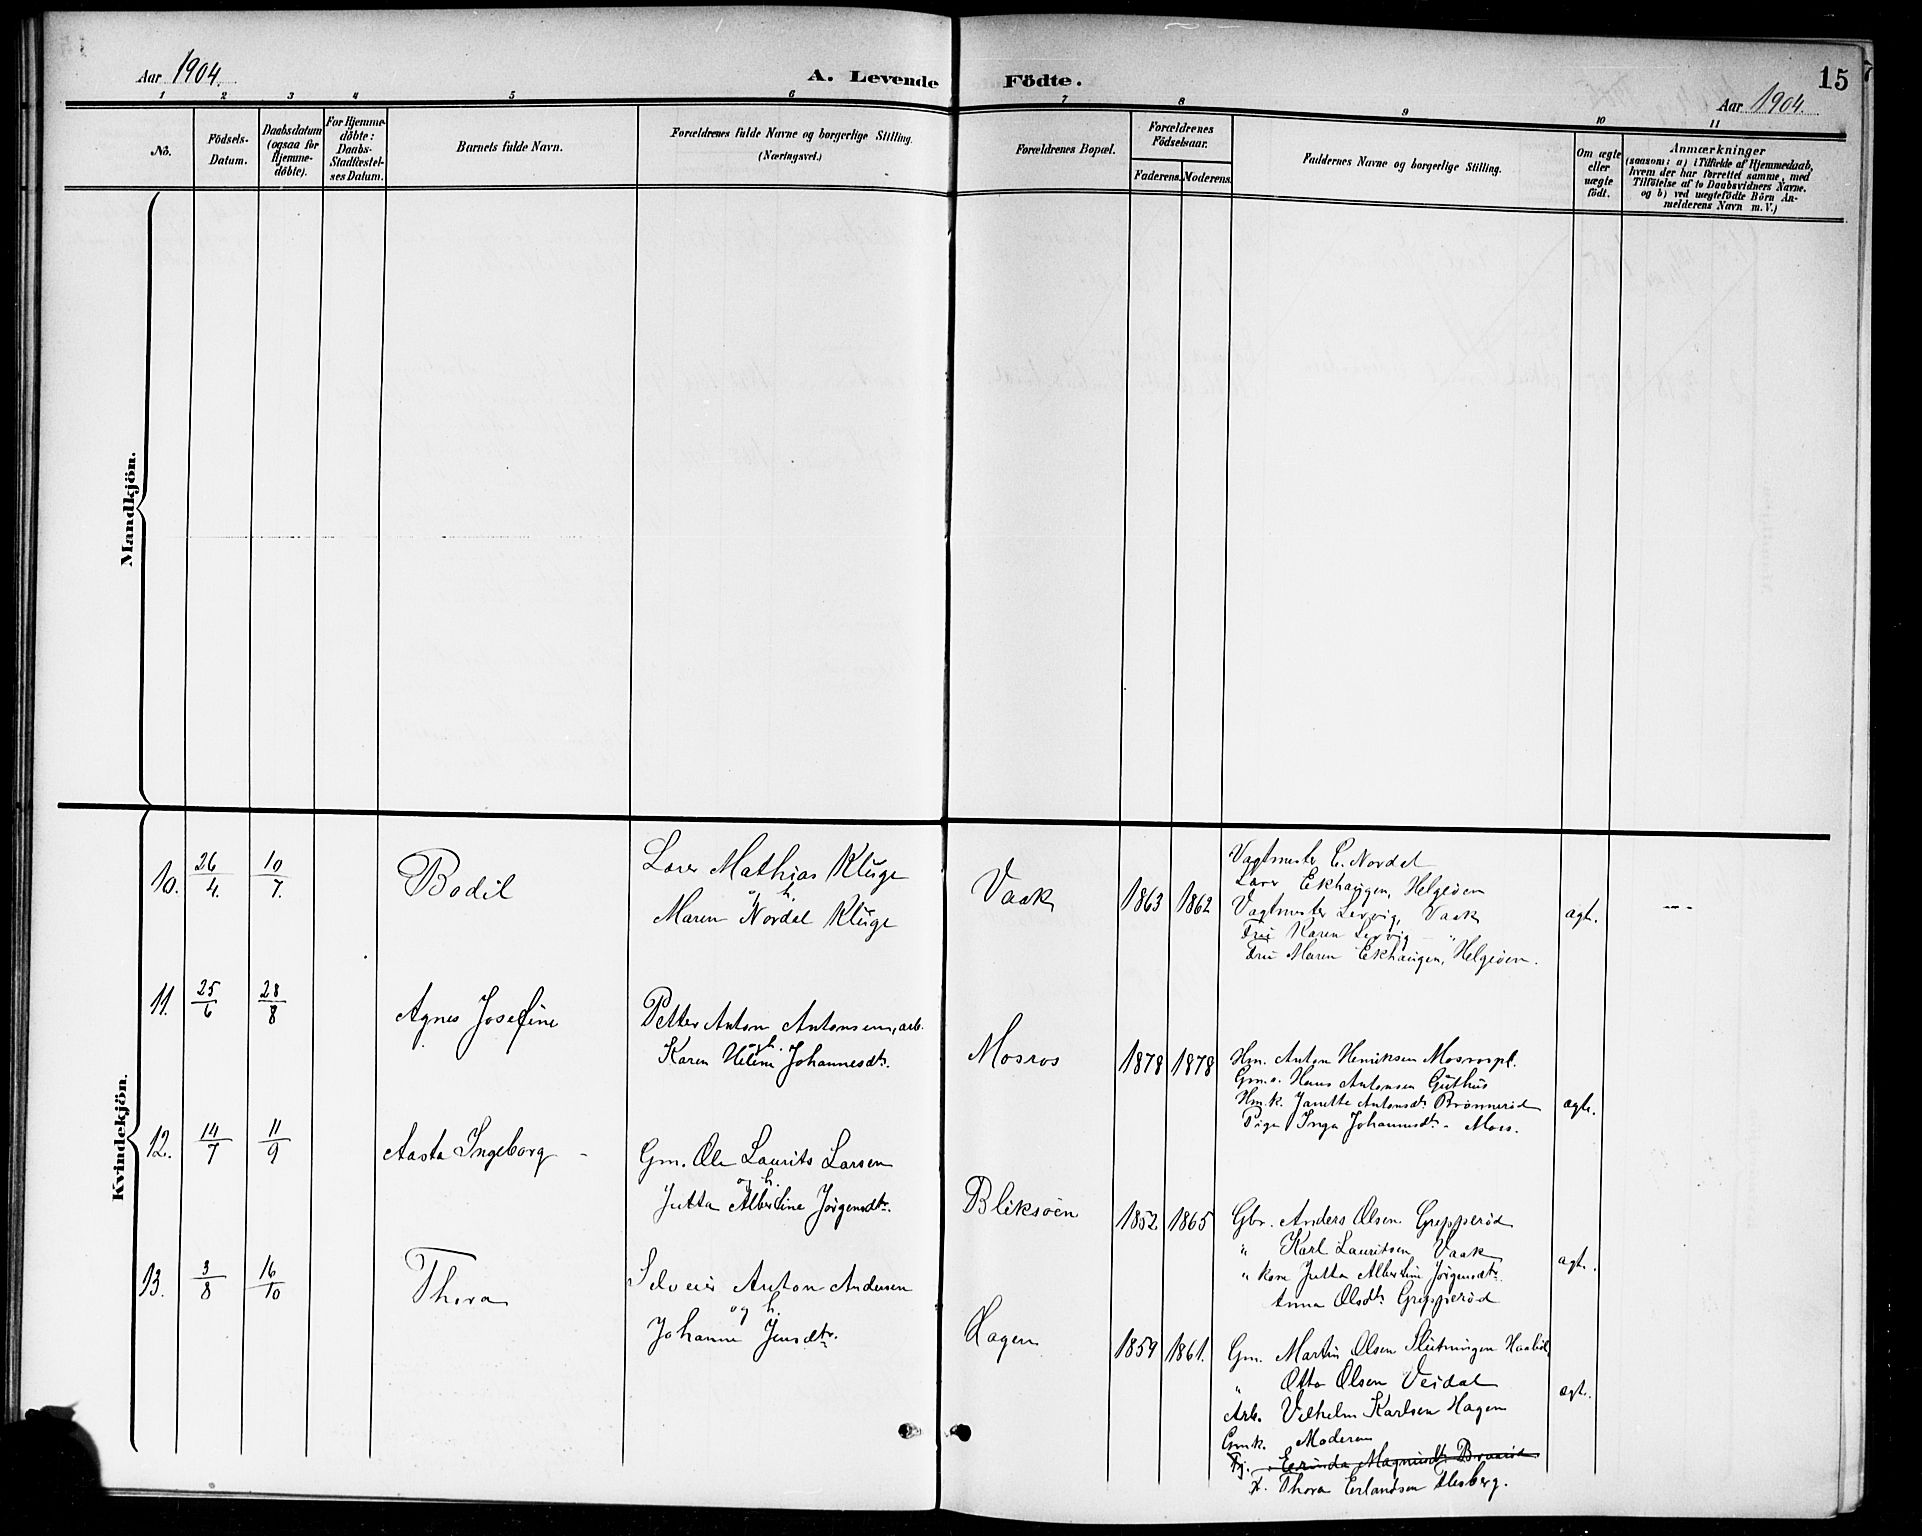 Aar 1904.
A. Levende Födte.
15
Aar 1904.
1 2 3 4 5 6 7 8 9 10 11
No.
Födsels-
Datum.
Daabsdatum
(ogsaa for
Hjemme-
döbte).
For Hjemme-
döbte:
Daabs-
Stadfæstel-
ses Datum.
Barnets fulde Navn.
Forældrenes fulde Navne og borgerlige Stilling.
(Næringsvei.)
Forældrenes Bopæl.
Forældrenes
Födselsaar.
Faderens. Moderens.
Faddernes Navne og borgerlige Stilling.
Om ægte
eller
uægte
födt.
Anmærkninger
(saasom: a) i Tilfælde af Hjemmedaab,
hvem der har forrettet samme, med
Tilföielse af to Daabsvidners Navne.
og b) ved uægtefödte Börn An-
melderens Navn m. V.)
Mandkjön.
Kvindekjön.
10. 26/4. 10/7. Bodil
Mathias Kluge
og h.
Maren Nordal Kluge
Vaak 1863 1862
Vagtmester E. Nordal
Ekhaugen, Helgeöen
Vagtmester Lervig, Vaak
Fru Karen Lervig "
Fru Maren Ekhaugen, Helgeöen.
ægt.
11. 25/6 28/8 Agnes Josefine
Petter Anton Antonsen, arb.
og h.
Karen Helene Johannesdt.
Mosros 1878 1878
Hm. Anton Henriksen Mosrospl.
Gm.s. Hans Antonsen Guthus
Hm.k. Janette Antonsdt. Brönneröd
Pige Inga Johannesdt. - Moss.
ægt.
12. 14/7 11/9 Aasta Ingeborg -
Gm. Ole Laurits Larsen
og h.
Jutta Albertine Jörgensdtr.
Bliksöen 1852 1865
Gbr. Anders Olsen Grepperöd
" Karl Lauritsen Vaak
" kone Jutta Albertine Jörgensdtr.
Anna Olsdt. Grepperöd
ægt.
13. 3/8 16/10 Thora
Selveier Anton Andersen
og h.
Johanne Jensdtr.
Hagen 1859 1861.
Gm. Martin Olsen
" Otto Olsen Veidal
Arb. Vilhelm Karlsen Hagen
Gmk. Moderen
Magnusdt.
Thora Erlandsen Flesberg.
ægt.